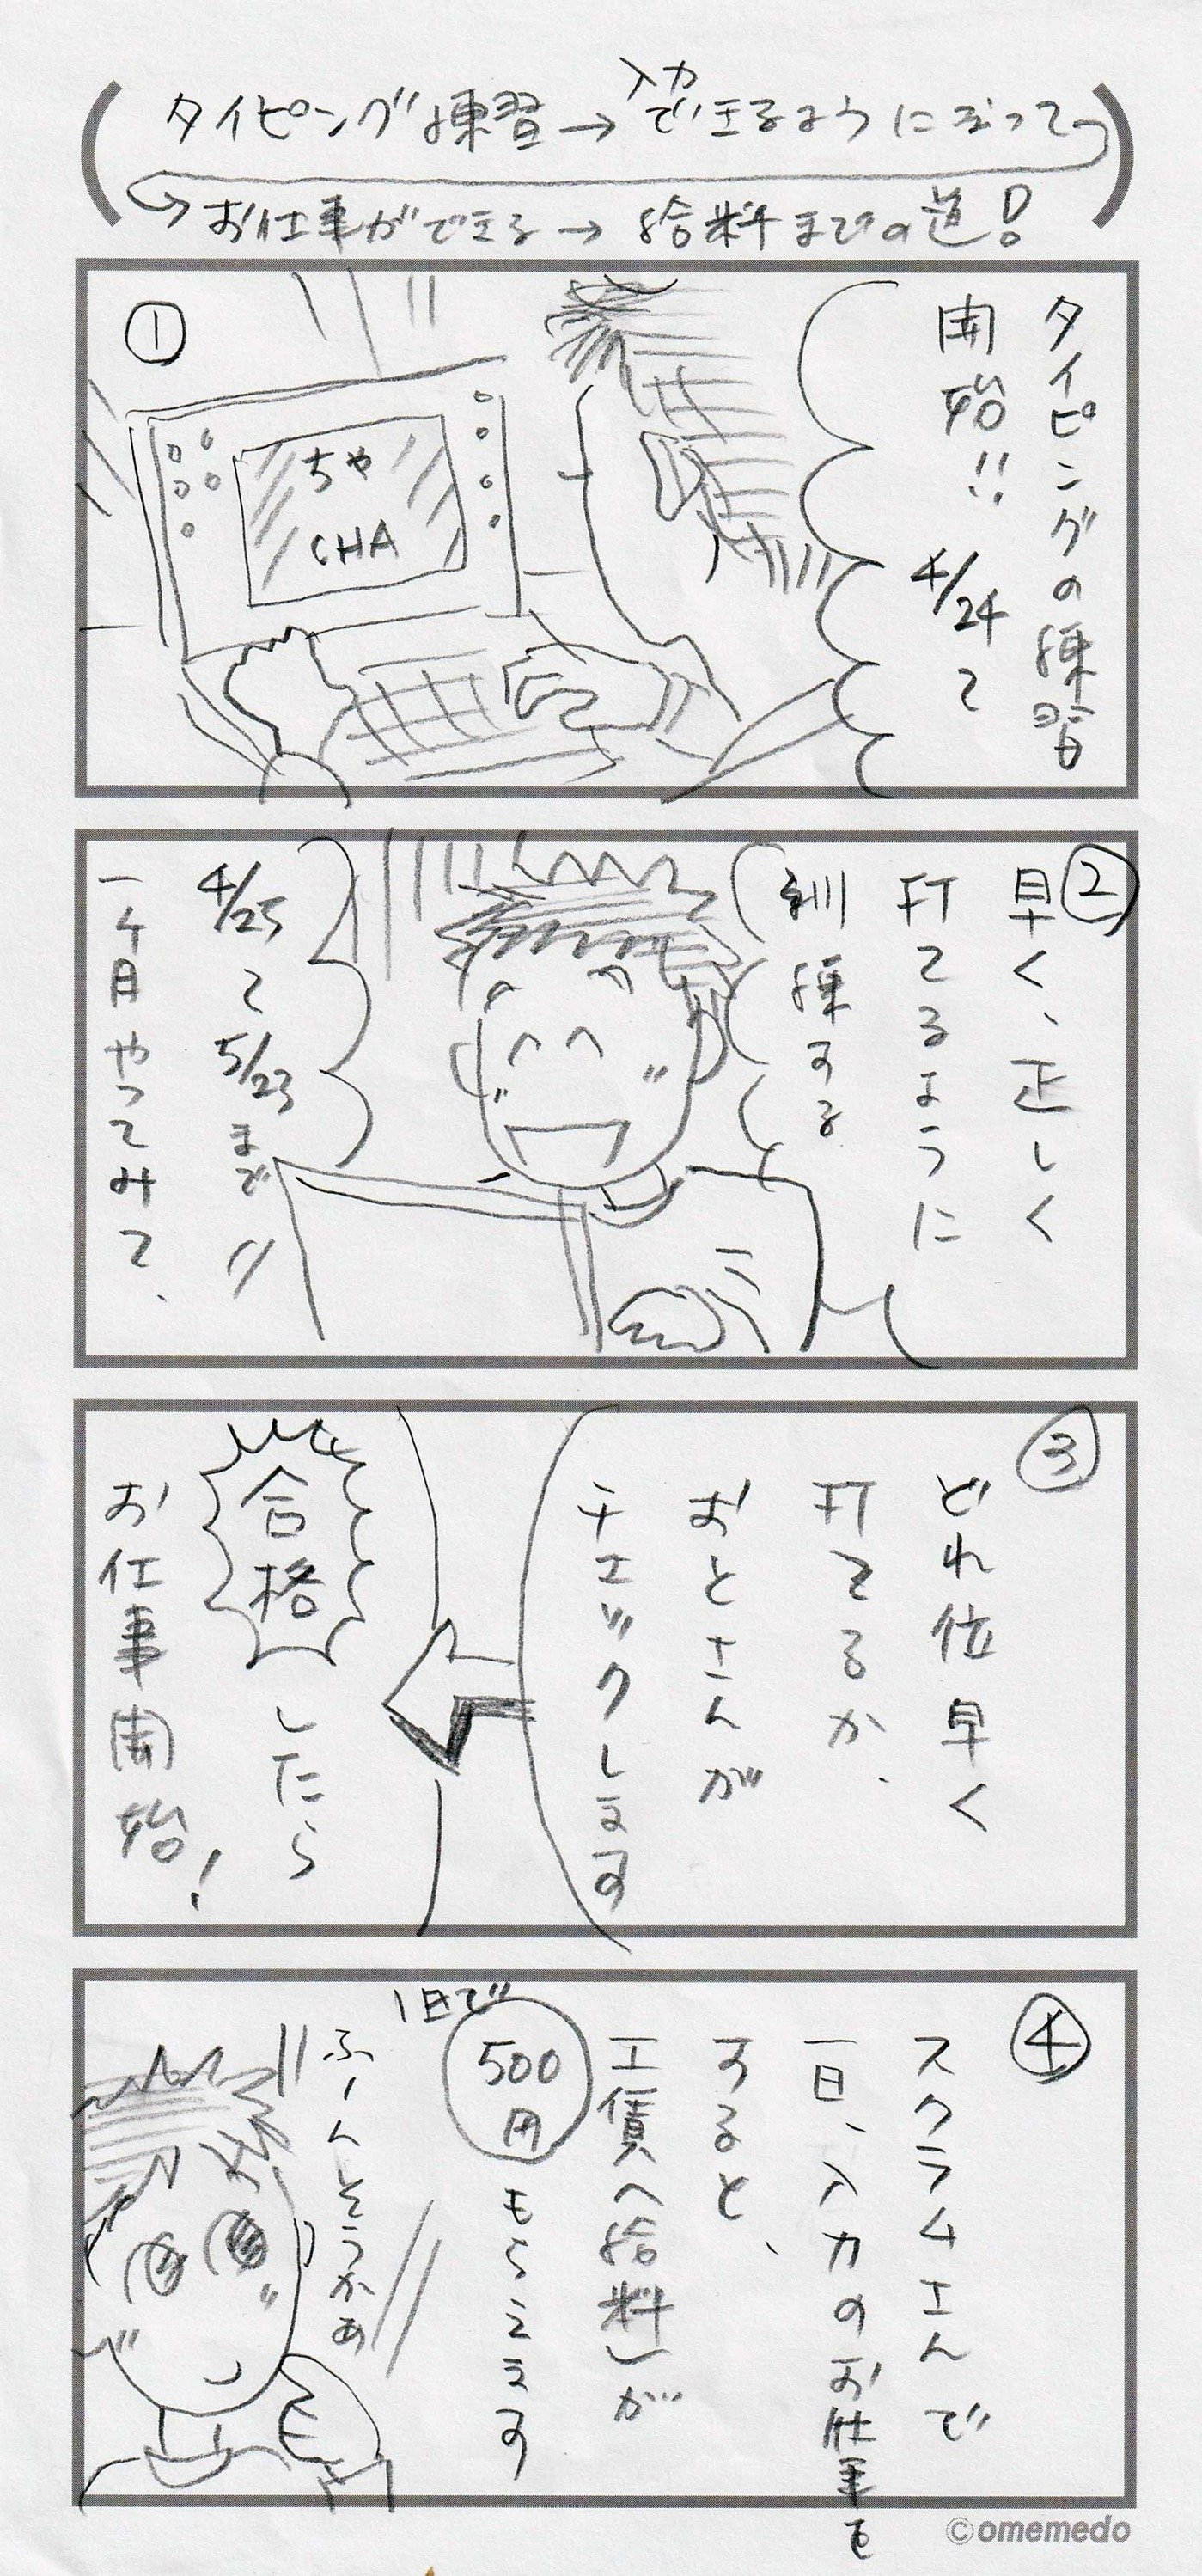 タイピング練習→入力できるようになって
→お仕事ができる→給料までの道!
①
タイピングの練習
開始!! 4/24で
ちゃ
CHA
②
早く、正しく
打てるように
訓練する
4/25で5/23まで
一ヶ月やってみて、
③
どれ位早く
打てるか、
おとさんが
チェックします
合格したら
お仕事開始!
④
スクラムエんで
一日、入力のお仕事を
すると、
工賃(給料)が
1日で
500円もらえます
ふーんそうかぁ
©omemedo